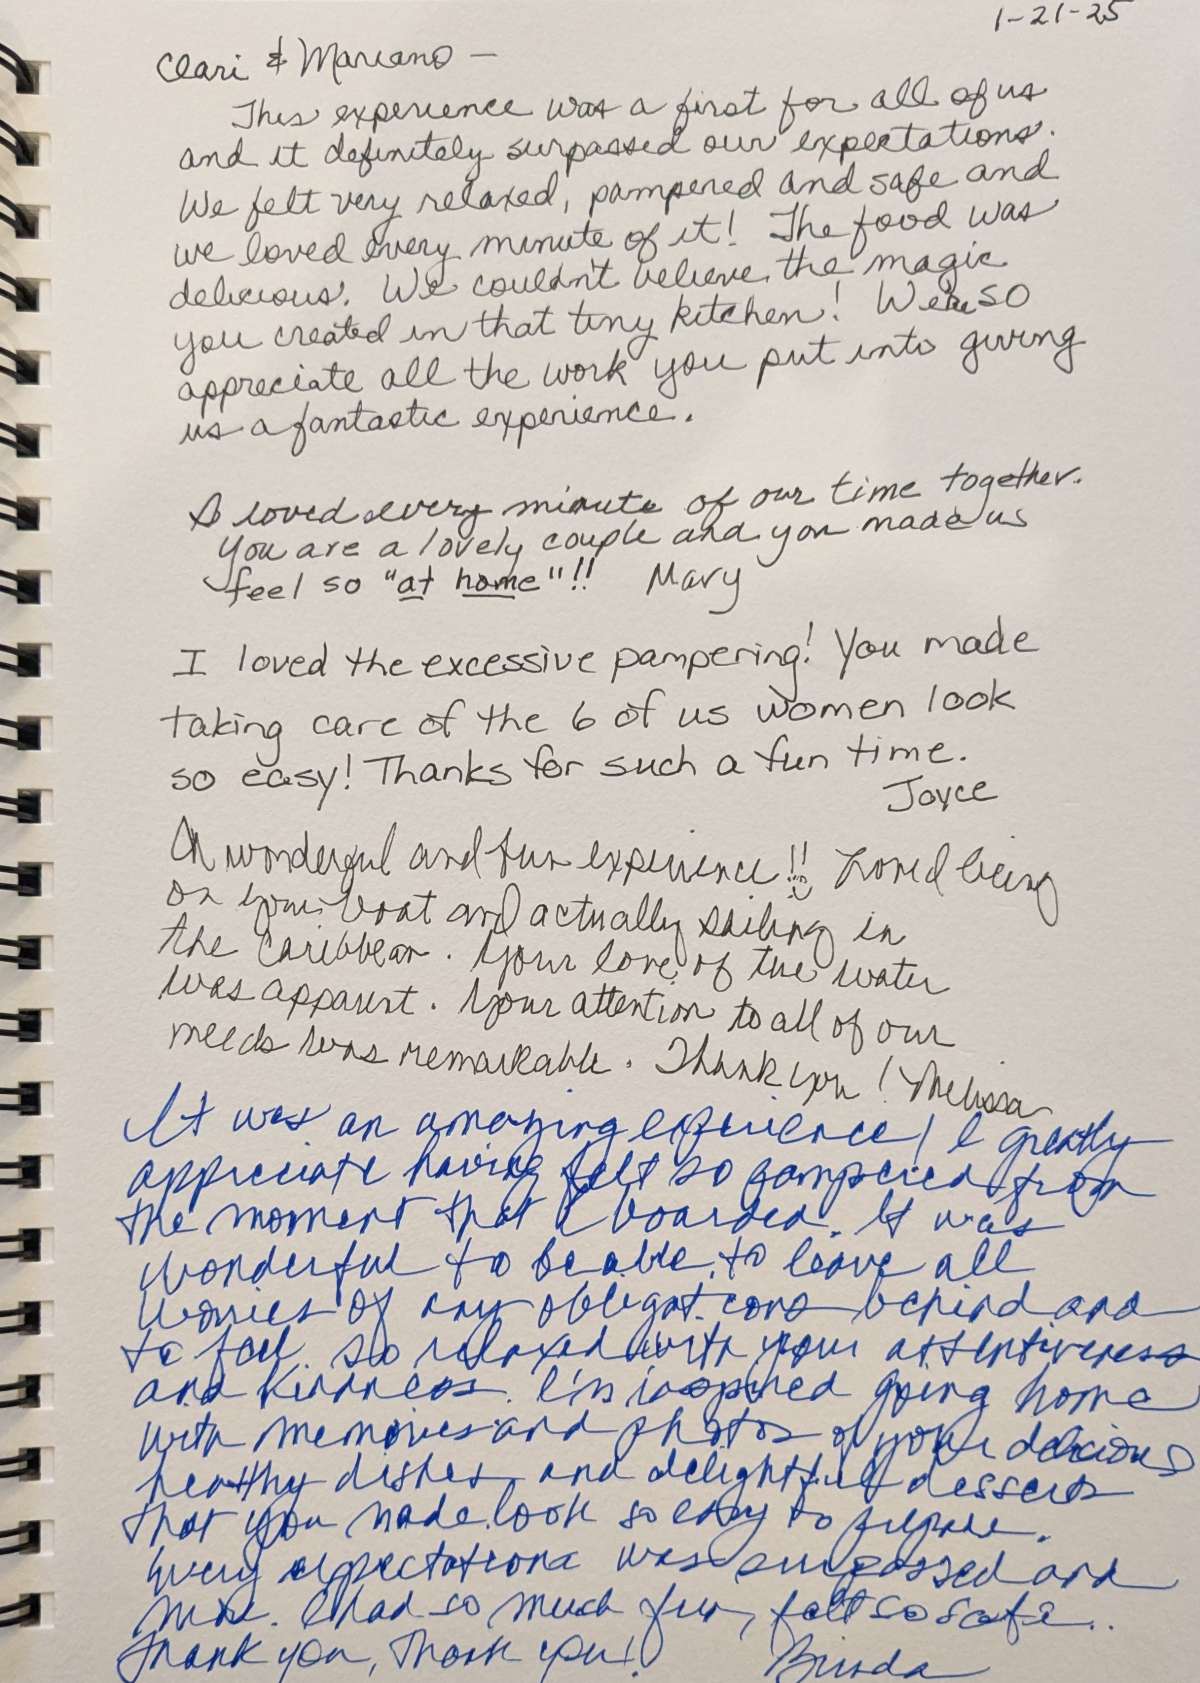 1-21-25
Clari & Mariano —
This experience was a first for all of us
and it definitely surpassed our expectations.
We felt very relaxed, pampered and safe and
we loved every minute of it! The food was
delicious. We couldn't believe the magic
you created in that tiny kitchen! We so
appreciate all the work you put into giving
us a fantastic experience.
I loved every minute of our time together.
You are a lovely couple and you made us
feel so "at home"!! Mary
I loved the excessive pampering! You made
taking care of the 6 of us women look
so easy! Thanks for such a fun time.
Joyce
A wonderful and fun experience!! Loved being
on your boat and actually sailing in
the Caribbean. Your love of the water
was apparent. Your attention to all of our
needs was remarkable. Thank you! Melissa
It was an amazing experience! I greatly
appreciate having felt so pampered from
the moment that I boarded. It was
wonderful to be able to leave all
worries of any obligations behind and
to feel so relaxed with your attentiveness
and kindness. I'm inspired going home
with memories and photos of your delicious
healthy dishes and delightful desserts
that you made look so easy to prepare.
Every expectation was surpassed and
more. I had so much fun, felt so safe..
Thank you, Thank you! Brinda